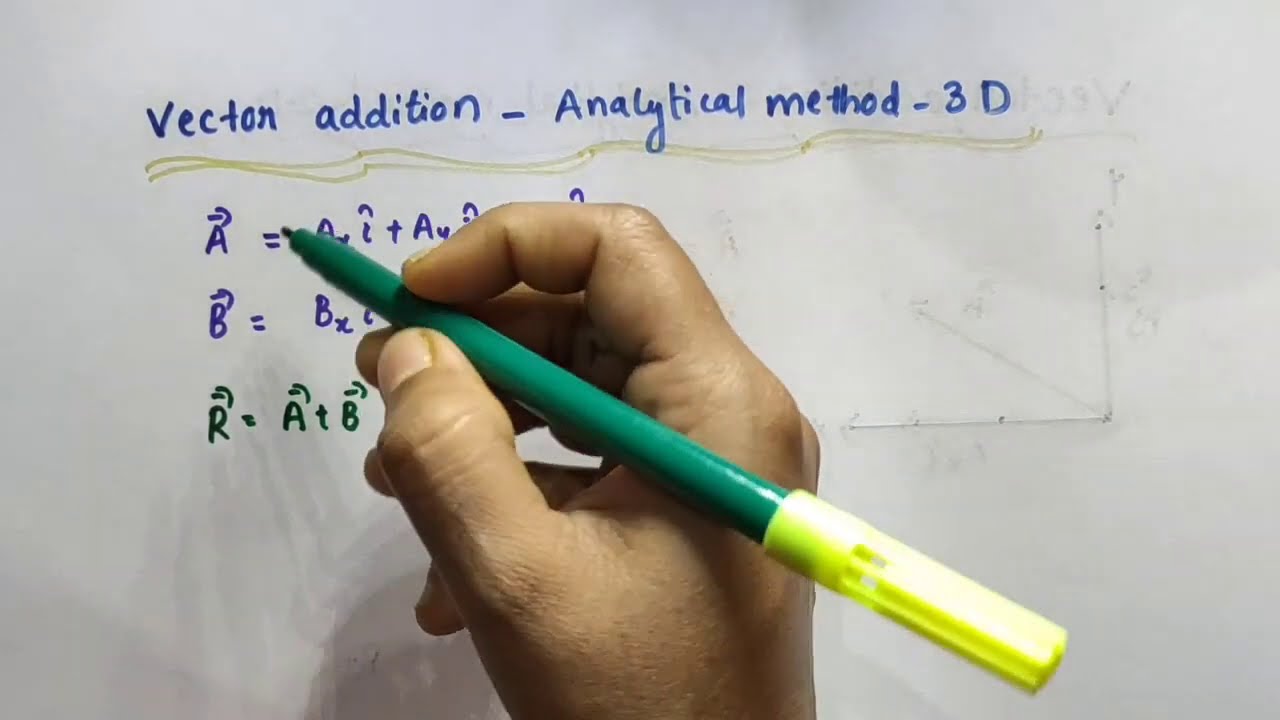 Vector addition - Analytical method - 3D
A⃗ = Aₓ î + Aᵧ
B⃗ = Bₓ î
R⃗ = A⃗ + B⃗